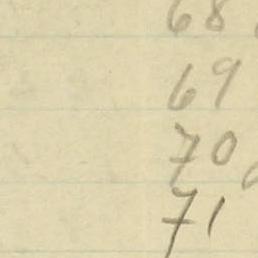 68
69
70
71